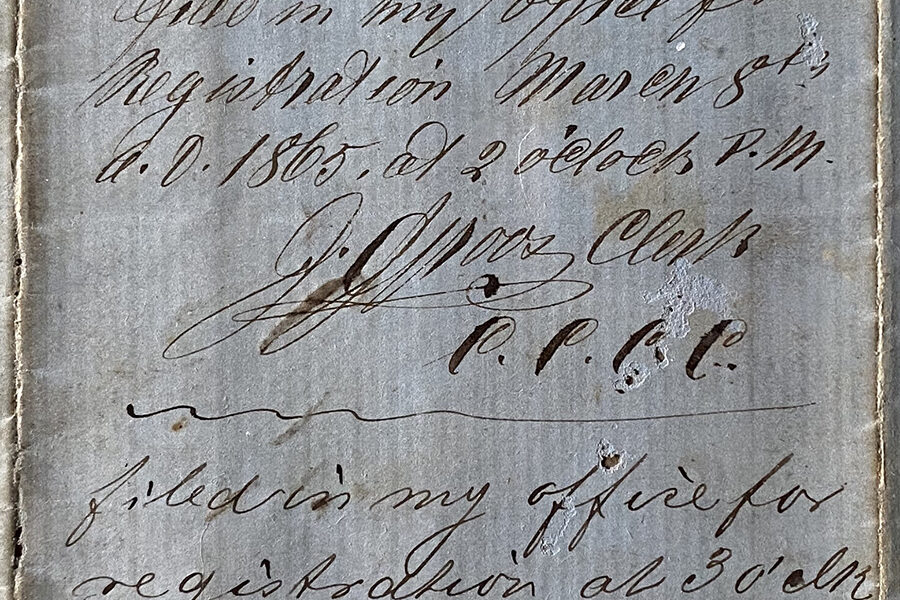 filed in my office for
Registration March 8th
A.D. 1865. at 2 o'clock P.M.
J. Clerk
C. C.
filed in my office for
registration at 3 o'clk